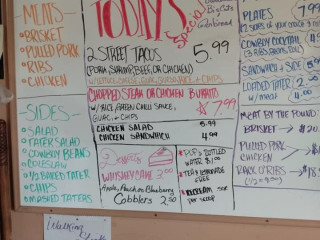 MEATS
• BRISKET
• PULLED PORK
• RIBS
• CHICKEN
SIDES -
• SALAD
• TATER SALAD
• COWBOY BEANS
• COLESLAW
• 1/2 BAKED TATER
• CHIPS
• MASHED TATERS
TODAY'S
Specials
Cornbread
2 STREET TACOS 5.99
(PORK, SHRIMP, BEEF, OR CHICKEN)
CHOPPED STEAK OR CHICKEN BURRITO
W/ RICE, GREEN CHILI SAUCE, $7.99
GUAC. & CHIPS
CHICKEN SALAD 5.99
CHICKEN SANDWHICH 4.99
Desserts
WHISKEY CAKE 3.00
Apple, Peach or Blueberry
Cobblers 2.50
• POP & BOTTLED
WATER $1.00
• TEA & LEMONADE
FREE
• ICECREAM 50¢
PER SCOOP
PLATES 7.99
COWBOY COCKTAIL
SANDWICH + SIDE
LOADED TATER 2.00
w/ meat 4.00
MEAT BY THE POUND
BRISKET
PULLED PORK
CHICKEN
RACK O'RIBS
Walking